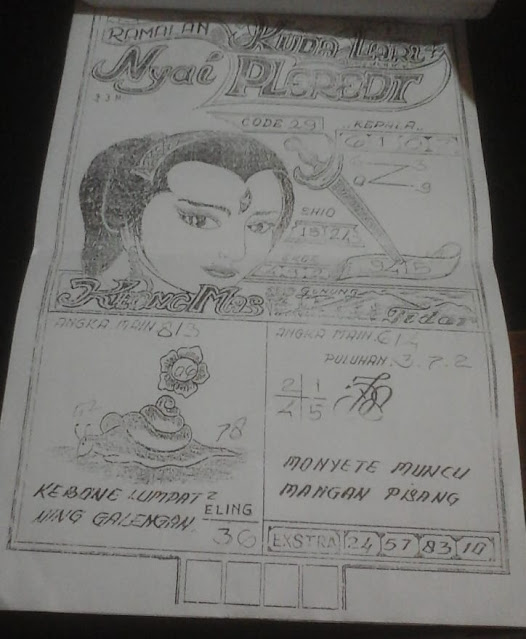 RAMALAN KUDA LARI
Nyai PLEREDT
CODE 29
"KEPALA"
6 1 0 7
SHIO
18 21
9415
KEONG MAS
GUNUNG
Tidar
ANGKA MAIN 813
06
78
KEBONE LUMPAT2
NING GALENGAN
ELING
36
ANGKA MAIN
PULUHAN 3.7.2
2 1
4 5
MONYETE MUNCU
MANGAN PISANG
EXSTRA 24 57 83 10